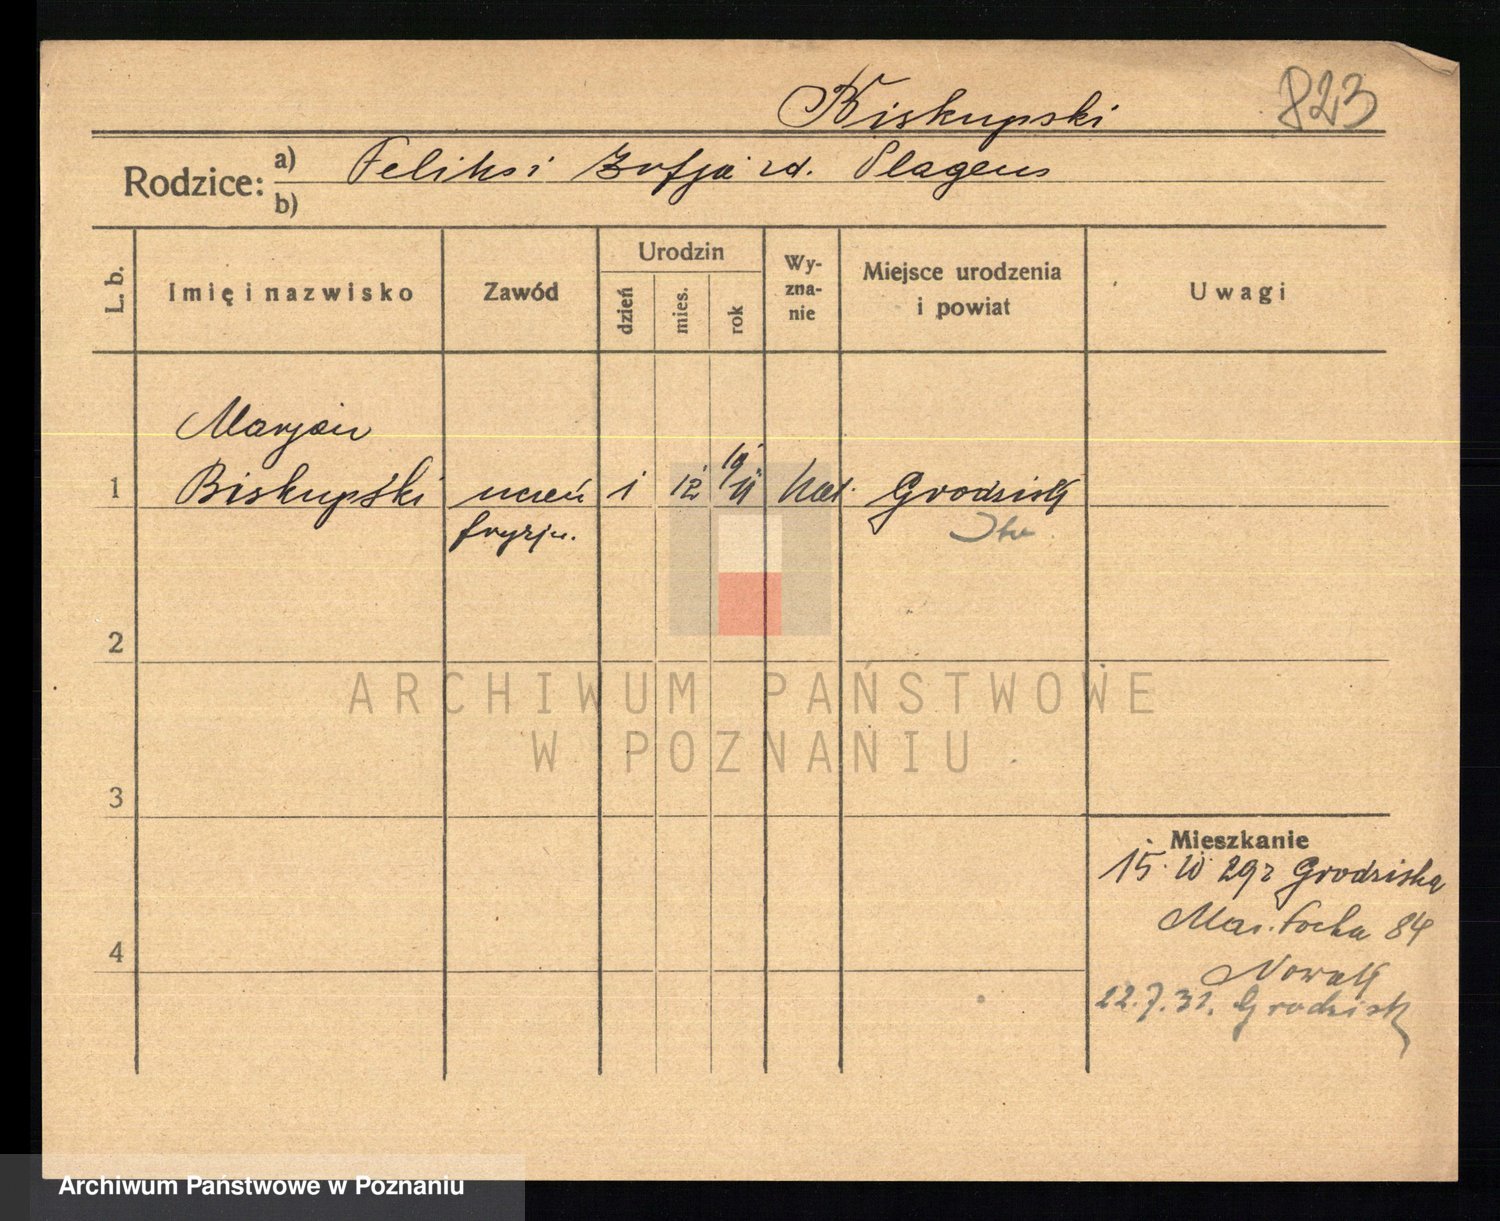 Biskupski
823
Rodzice:
a) Feliks i Zofja zd. Plagens
b)
L. b.
Imię i nazwisko
Zawód
Urodzin
dzień
mies.
rok
Wy-
zna-
nie
Miejsce urodzenia
i powiat
Uwagi
Marjan
1 Biskupski uczeń 1 12 19 11 kat. Grodzisk
fryzje.
2
3
4
ARCHIWUM PAŃSTWOWE
W POZNANIU
Mieszkanie
15. 10 29 r Grodziska
Mar. Focha 84
Nowak
22.7.31. Grodzisk
Archiwum Państwowe w Poznaniu